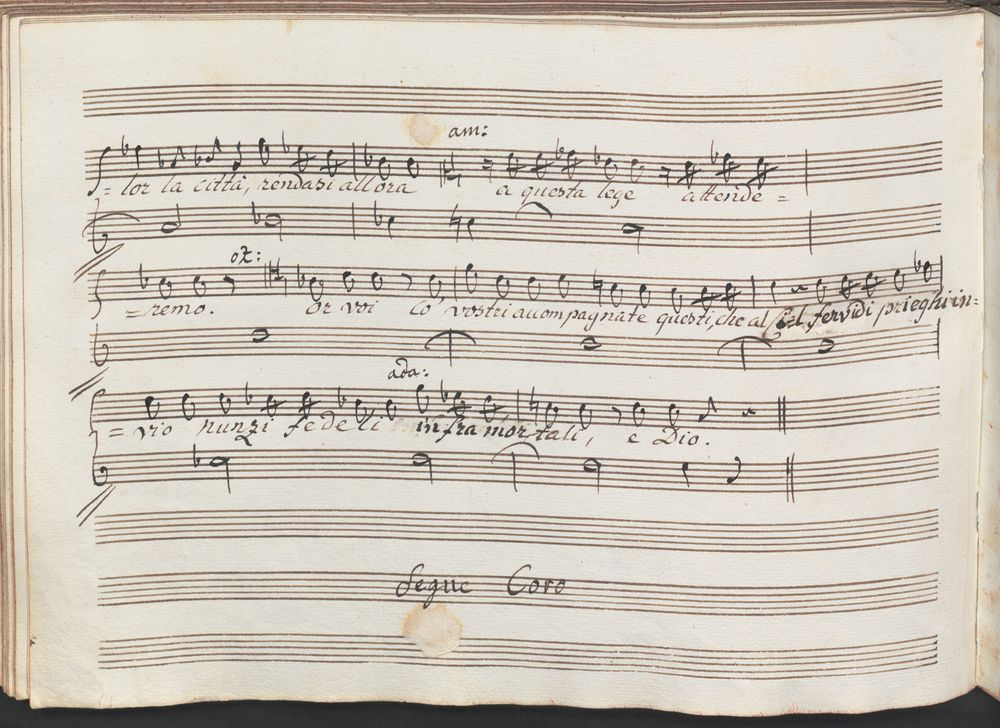 am:
=lor la città, rendasi allora a questa lege attende=
oz:
=remo. or voi co vostri accompagnate questi, che al Ciel fervidi prieghi in=
ada:
=vio nunzi fedeli infra mortali, e Dio.
Segue Coro